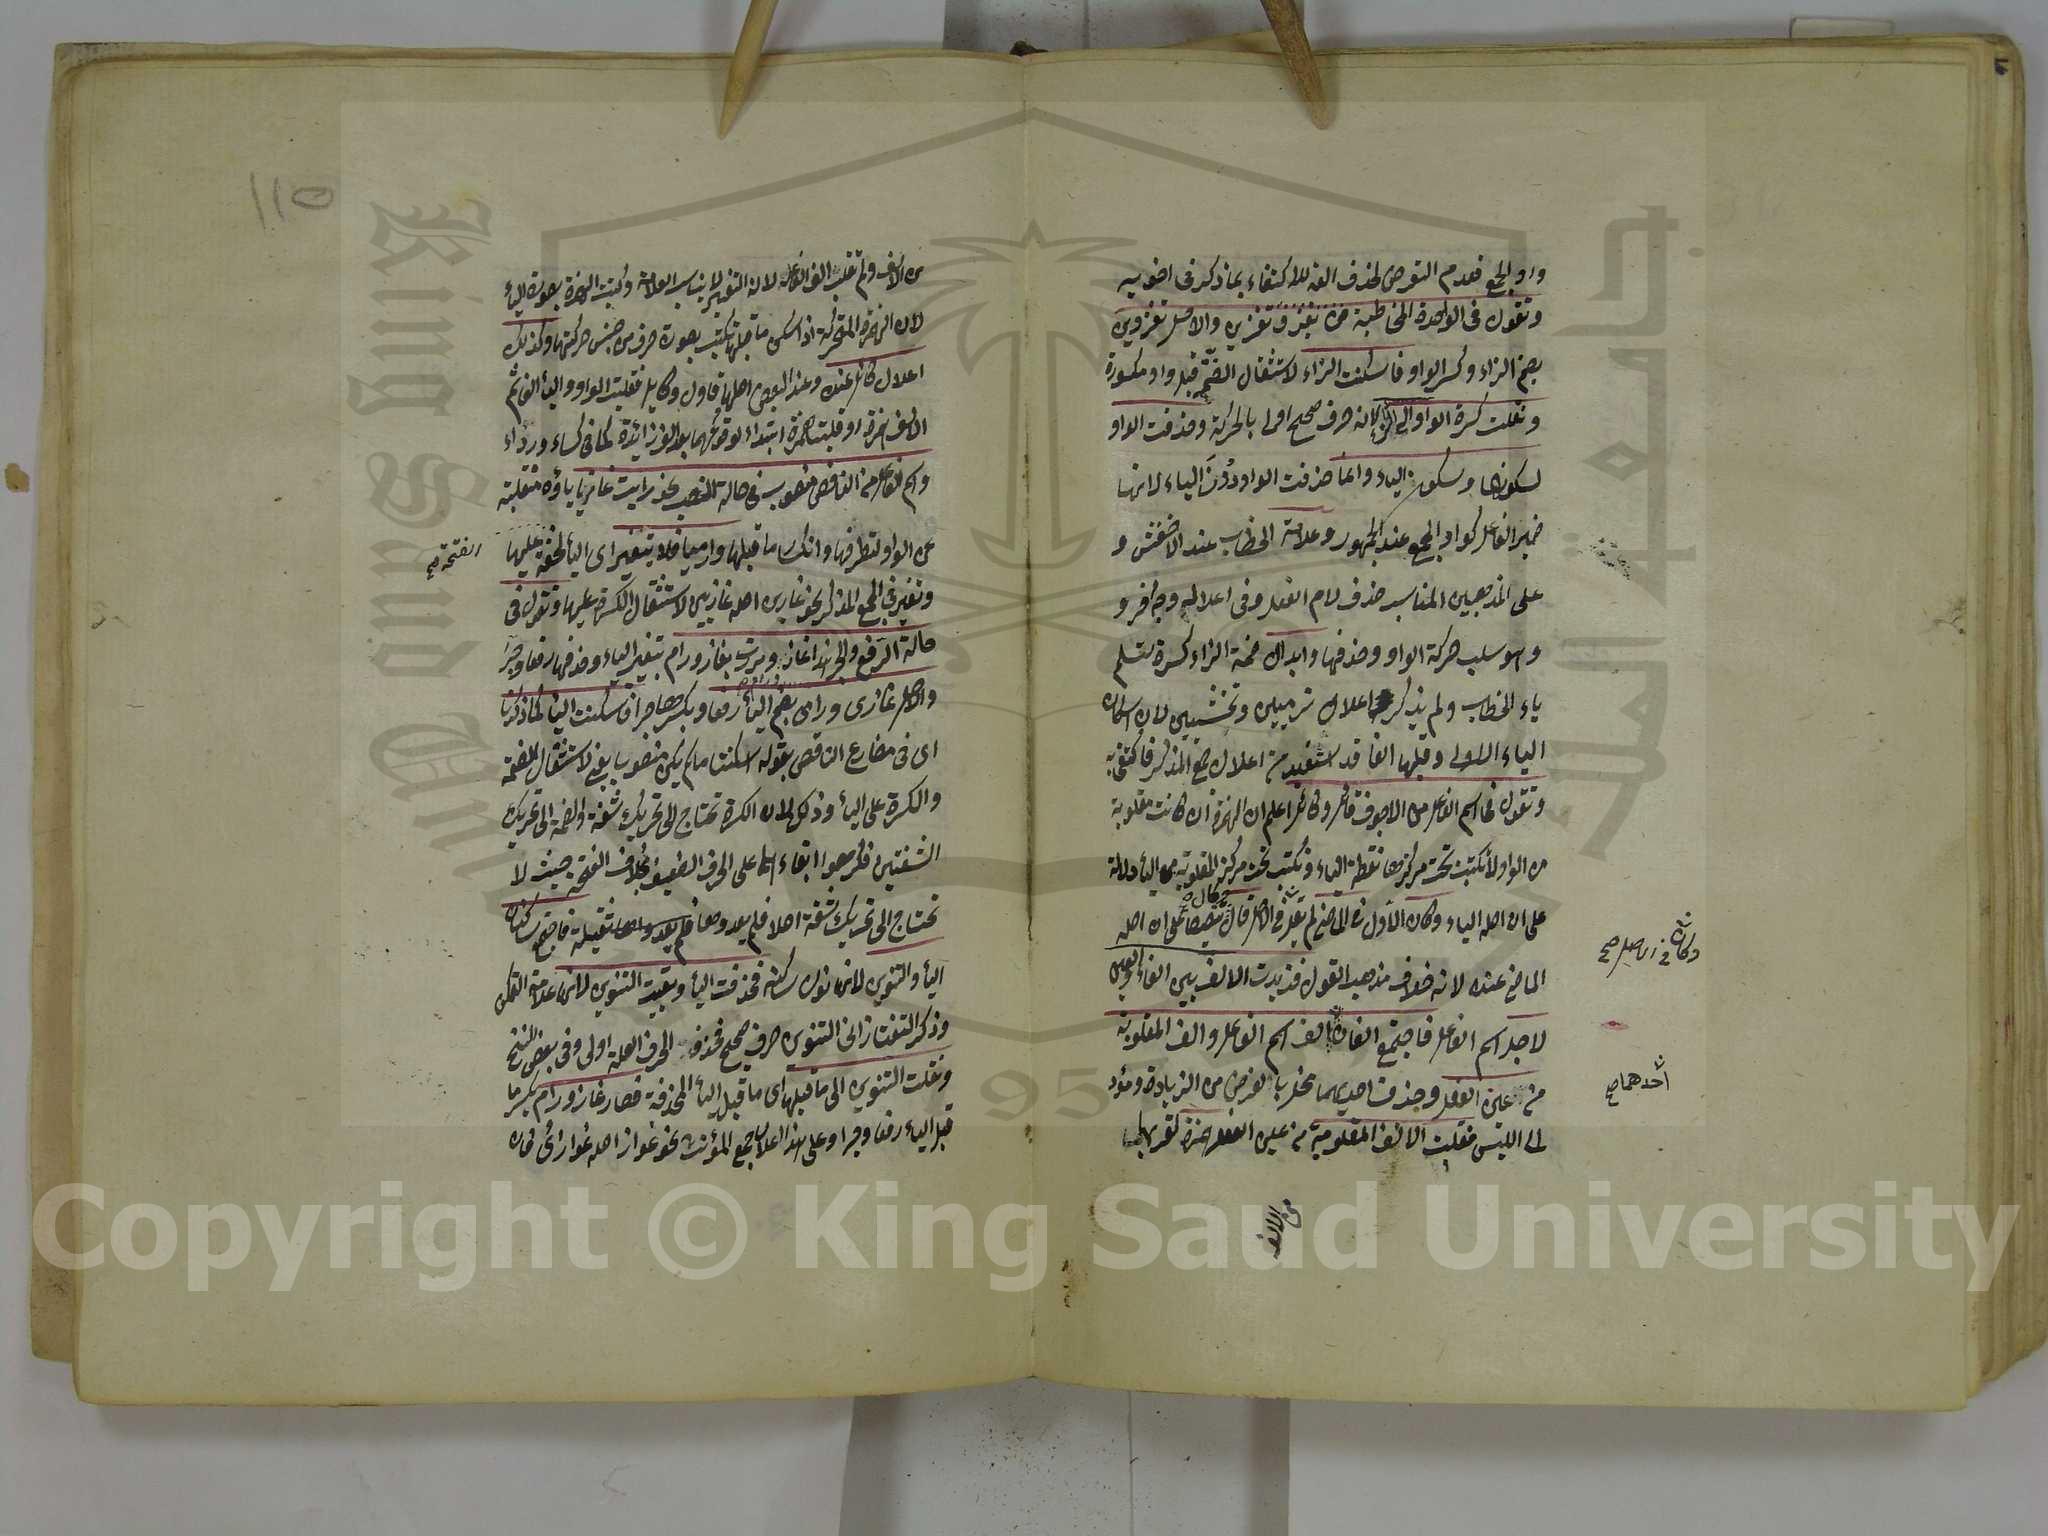 واو الجمع فعدم التعرض لحذف الفه للاكتفاء بما ذكر فى اضربيه
وتقول فى الواحدة المخاطبة من تغزو تغزين والاصل تغزوين
بضم الزاء وكسر الواو فاسكنت الزاء لاستثقال الضمة قبل واو مكسورة
ونقلت كسرة الواو الى الزاء لانه حرف صحيح اولى بالحركة وحذفت الواو
لسكونها وسكون الياء وانما حذفت الواو دون الياء لانها
ضمير الفاعل كواو الجمع عند الجمهور وعلامة الخطاب عند الاخفش و
على المذهبين المناسب حذف لام الفعل وفى اعلاله وجه آخر و
وهو سلب حركة الواو وحذفها وابدال ضمة الزاء كسرة لتسلم
ياء الخطاب ولم يذكر اعلال ترميين وتخشيين لان اسكان
الياء الاولى وقلبها الفا قد استفيد من اعلال جمع المذكر فاكتفى به
وتقول فى اسم الفاعل من الاجوف قائل وكائل اعلم ان الهمزة ان كانت مقلوبة
من الواو لا تكتب تحت مركزها نقطة الياء وتكتب تحت مركز المقلوبة من الياء دلالة
على ان اصله الياء وكان الاول فى الماضى لم يقل فى الاصل قال تنصيصا على ان اصله
وكان فى الاصل صح
الماضى عنده لانه خلاف مذهب القول فزيدت الالف بين الفاء والعين
لاجل اسم الفاعل فاجتمع الفان الف اسم الفاعل والف المقلوبة
من عين الفعل وحذف احديهما مخل بالغرض من الزيادة ومؤد
احدهما صح
الى اللبس فقلبت الالف المقلوبة من عين الفعل همزة لقربها
من الالف
١١٥
من الالف ولم تقلب الف الفاعل لانه التغير لا يناسب العلامة وكتبت الهمزة بصورة الياء
لان الهمزة المتحركة اذا سكن ما قبلها تكتب بصورة حرف من جنس حركتها وكذلك
اعلال كائل عنده وعند البعض اصلها قاول وكايل فقلبت الواو والياء الفا ثم
الالف همزة او قلبتا همزة ابتداء لوقوعهما بعد الف زائدة كما فى كساء ورداء
واسم الفاعل من الناقص منصوب فى حالة النصب نحو رايت غازيا ياؤه منقلبة
عن الواو لتطرفها وانكسار ما قبلها وراميا فلا يتغير اى الياء لخفة عليها
الفتحة صح
وتغير فى الجمع المذكر نحو غازين اصله غازيين لاستثقال الكسرة عليها وتقول فى
حالة الرفع والجر هذا غاز ورام ومررت بغاز ورام بتغير الياء وحذفها رفعا وجرا
والاصل غازى ورامى بضم الياء رفعا وبكسرها جرا فاسكنت الياء كما ذكرنا
اى فى مضارع الناقص بقوله اسكنت ما لم يكن منصوبا يعنى لاستثقال الضمة
والكسرة على الياء وذلك لان الكسرة تحتاج الى تحريك شفة والضمة الى تحريك
الشفتين فكرهوا ابقاءها على الحرف الضعيف بخلاف الفتحة حيث لا
تحتاج الى تحريك شفة اصلا فلم يعدوها ثقيلة فاجتمع ساكنان
الياء والتنوين لانها نون ساكنة فحذفت الياء وبقيت التنوين لانها علامة التمكن
وذكر التفتازانى التنوين حرف صحيح فحذف الحرف العلة اولى وفى بعض النسخ
ونقلت التنوين الى ما قبلها اى ما قبل الياء المحذوفة فصار غاز ورام بكسر ما
قبل الياء رفعا وجرا وعلى هذا اعلال جمع المؤنث نحو غواز اصله غوازى فان
King Saud University
1957
Copyright © King Saud University